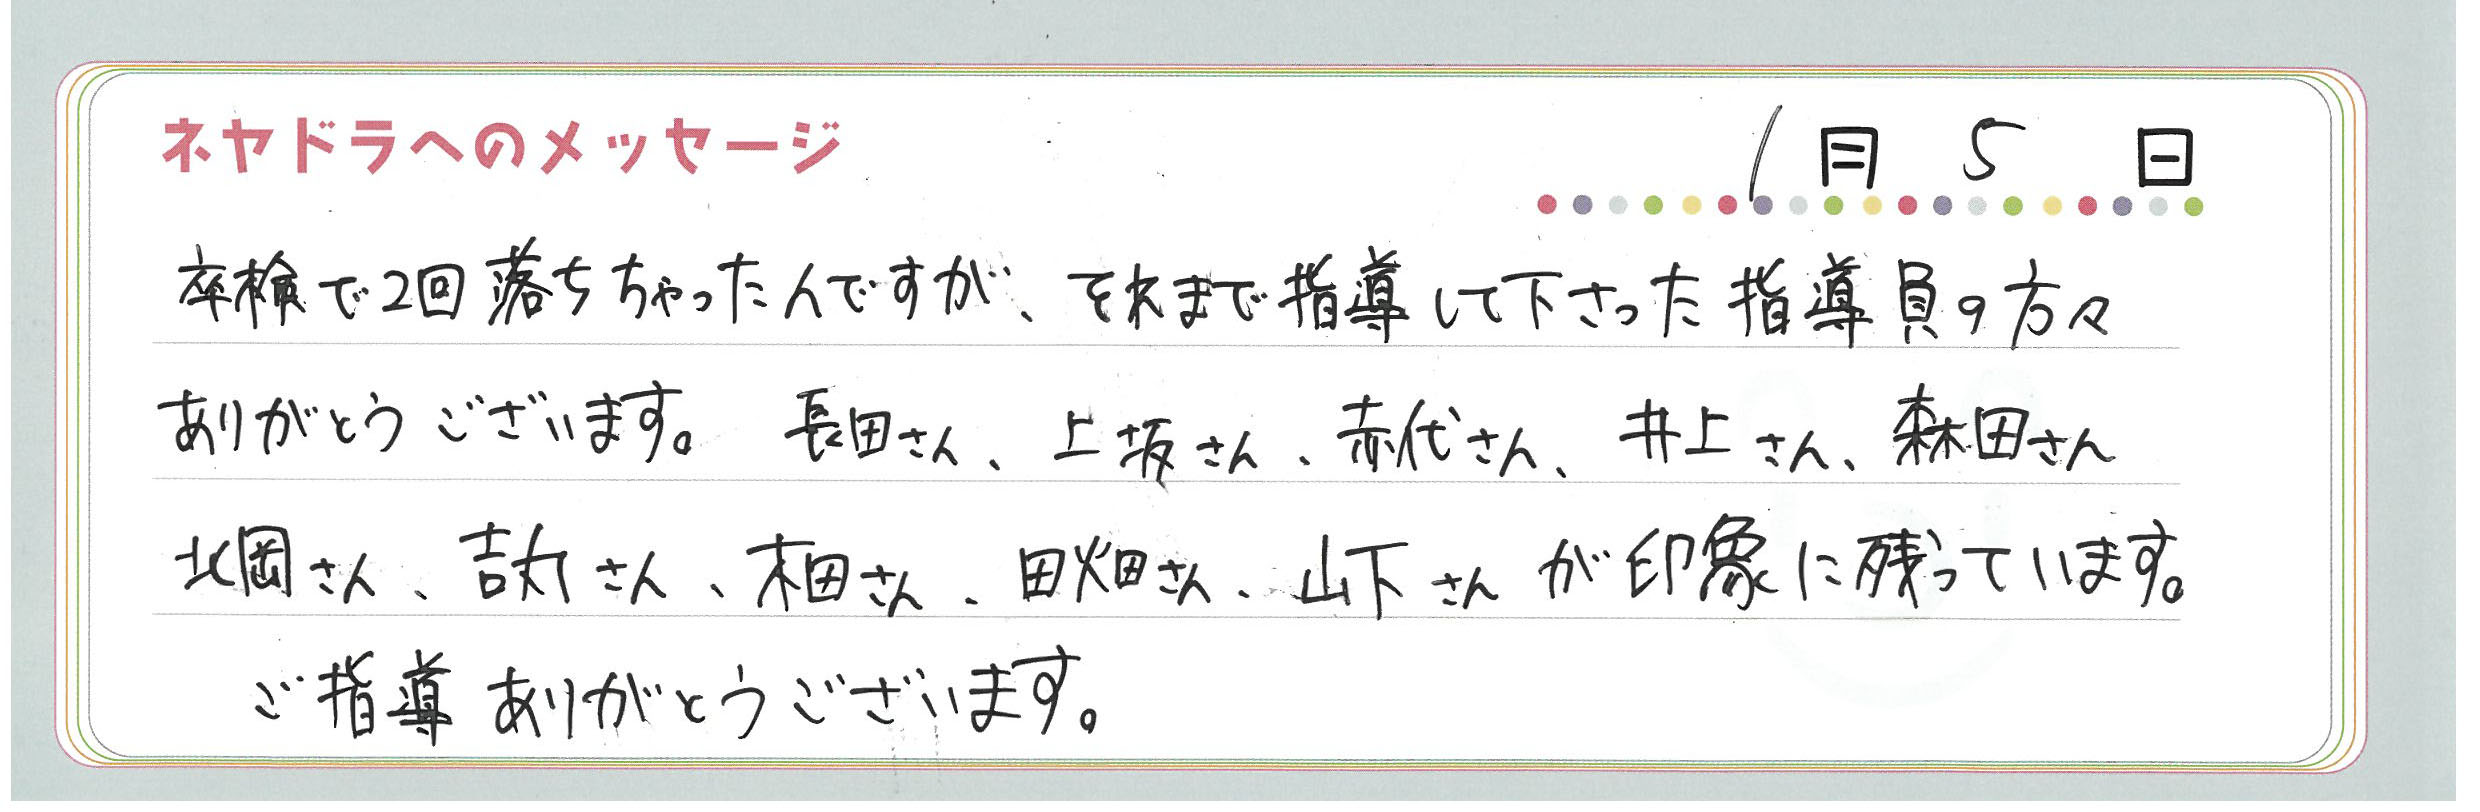 ネヤドラへのメッセージ
1月5日
卒検で2回落ちちゃったんですが、それまで指導して下さった指導員の方々
ありがとうございます。 長田さん、上坂さん、赤代さん、井上さん、森田さん
北岡さん、吉丸さん、本田さん、田畑さん、山下さんが印象に残っています。
ご指導ありがとうございます。